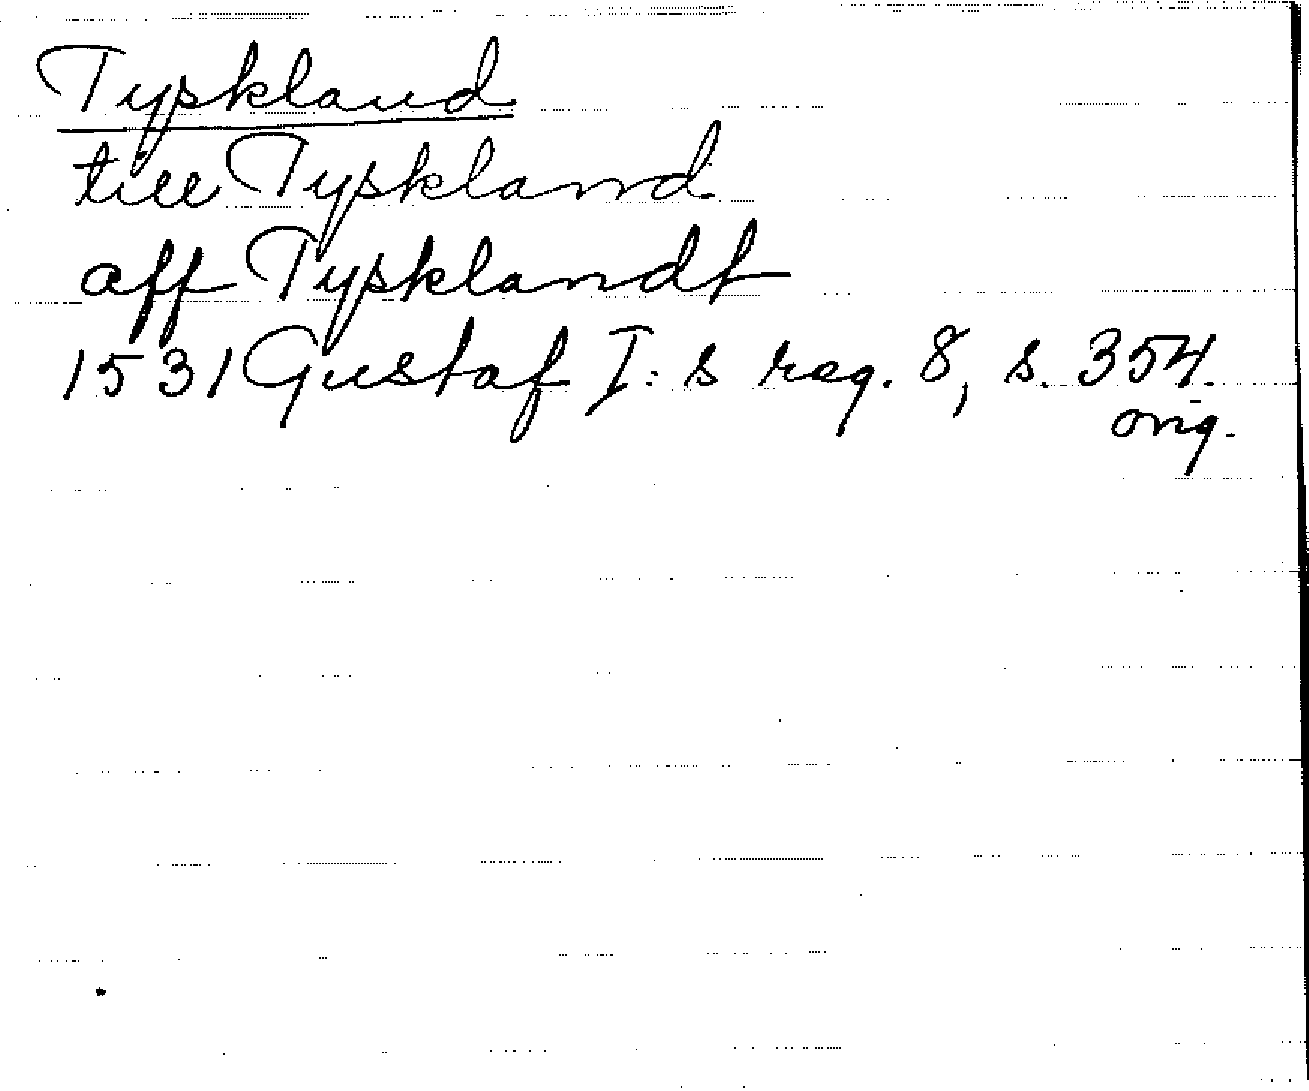 Tyskland
till Tyskland
aff Tysklandt
1531 Gustaf I:s reg. 8, s. 354.
orig.